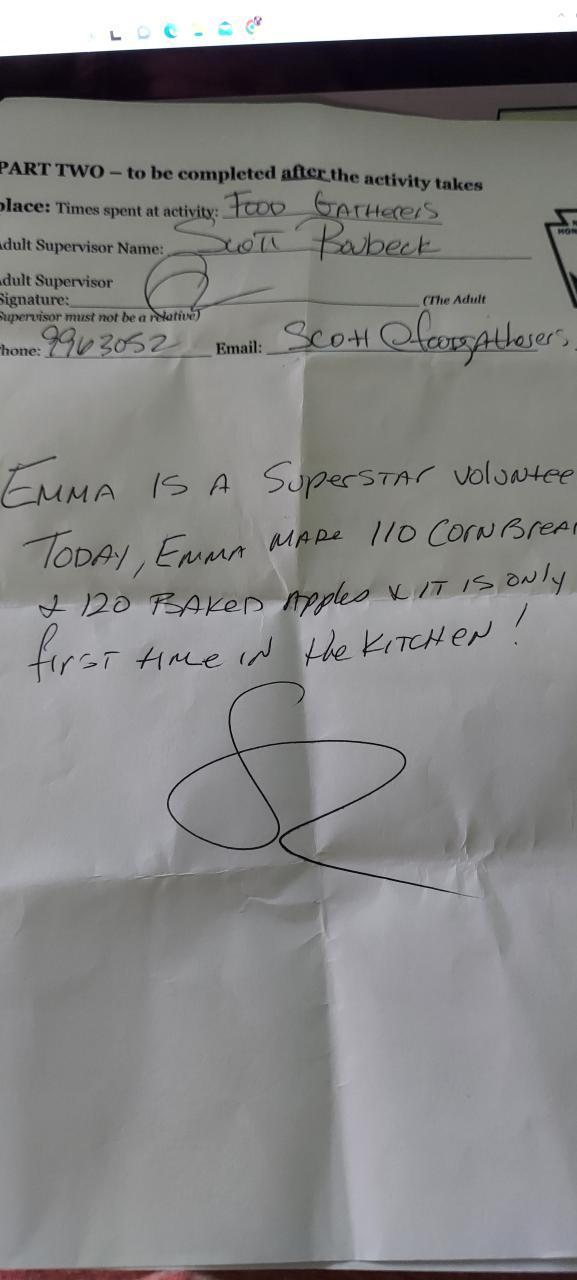 PART TWO – to be completed after the activity takes
place: Times spent at activity: FOOD GATHERERS
Adult Supervisor Name: SCOTT
Adult Supervisor
Signature: (The Adult
Supervisor must not be a relative)
Phone: 9963052 Email: SCOTT@foodgatherers.
EMMA IS A SUPERSTAR VOLUNTEE
TODAY, EMMA MADE 110 CORNBREA
& 120 BAKED APPLES & IT IS ONLY
first time IN the KITCHEN!